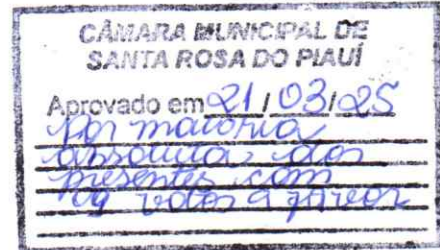 CÂMARA MUNICIPAL DE
SANTA ROSA DO PIAUÍ
Aprovado em 21/03/25
Por maioria
absoluta, dos
presentes com
09 votos a favor